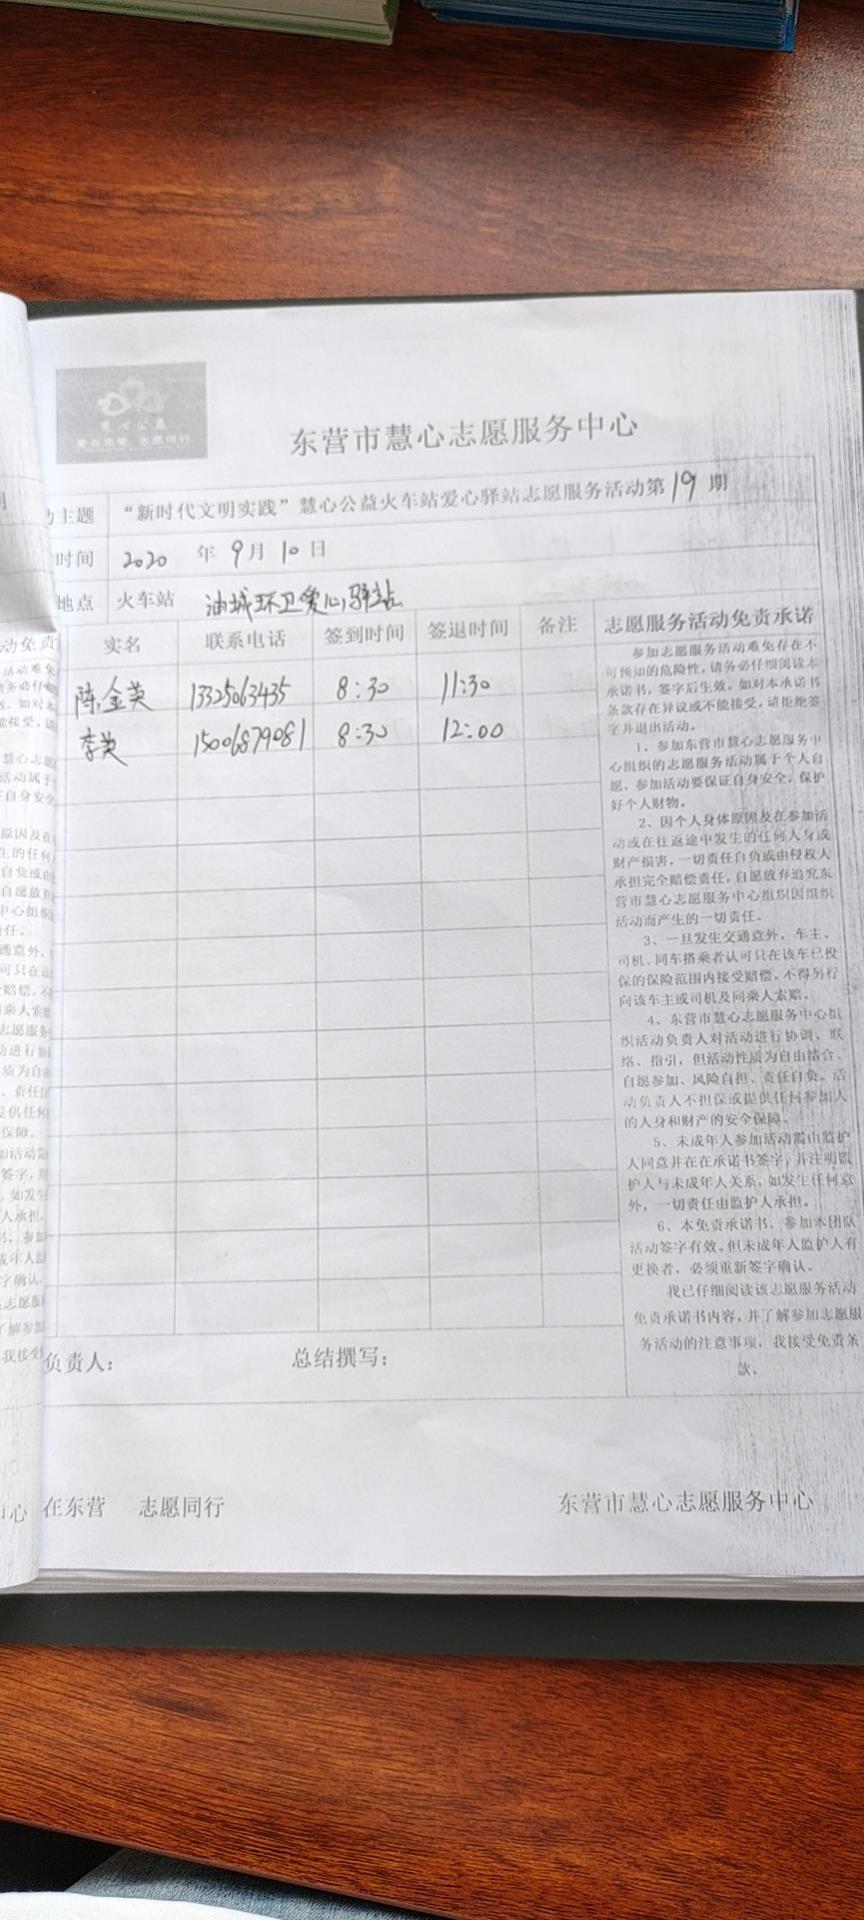 慧心公益
爱在东营 志愿同行
东营市慧心志愿服务中心
主题 “新时代文明实践”慧心公益火车站爱心驿站志愿服务活动第19期
时间 2020 年 9月 10日
地点 火车站 油城环卫爱心驿站
实名 联系电话 签到时间 签退时间 备注
陈金英 13325063435 8:30 11:30
李英 15006879081 8:30 12:00
志愿服务活动免责承诺
参加志愿服务活动难免存在不
可预知的危险性,请务必仔细阅读本
承诺书,签字后生效。如对本承诺书
条款存在异议或不能接受,请拒绝签
字并退出活动。
1、参加东营市慧心志愿服务中
心组织的志愿服务活动属于个人自
愿,参加活动要保证自身安全,保护
好个人财物。
2、因个人身体原因及在参加活
动或在往返途中发生的任何人身或
财产损害,一切责任自负或由侵权人
承担完全赔偿责任,自愿放弃追究东
营市慧心志愿服务中心组织因组织
活动而产生的一切责任。
3、一旦发生交通意外,车主、
司机、同车搭乘者认可只在该车已投
保的保险范围内接受赔偿,不得另行
向该车主或司机及同乘人索赔。
4、东营市慧心志愿服务中心组
织活动负责人对活动进行协调、联
络、指引,但活动性质为自由结合、
自愿参加、风险自担、责任自负。活
动负责人不担保或提供任何参加人
的人身和财产的安全保障。
5、未成年人参加活动需由监护
人同意并在在承诺书签字,并注明监
护人与未成年人关系,如发生任何意
外,一切责任由监护人承担。
6、本免责承诺书,参加本团队
活动签字有效。但未成年人监护人有
更换者,必须重新签字确认。
我已仔细阅读该志愿服务活动
免责承诺书内容,并了解参加志愿服
务活动的注意事项,我接受免责条
款。
负责人: 总结撰写:
在东营 志愿同行 东营市慧心志愿服务中心